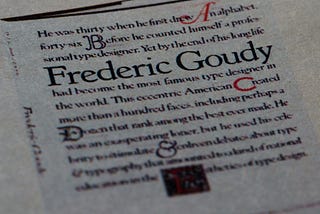 He was thirty when he first drew an alphabet.
forty-six Before he counted himself a profes-
sional type designer. Yet by the end of his long life
Frederic Goudy
had become the most famous type designer in
the world. This eccentric American Created
more than a hundred faces, including perhaps a
Dozen that rank among the best ever made. He
was an exasperating loner, but he used his cele-
brity to stimulate & enliven debates about type
& typography that amounted to a kind of national
education in the aesthetics of type design.